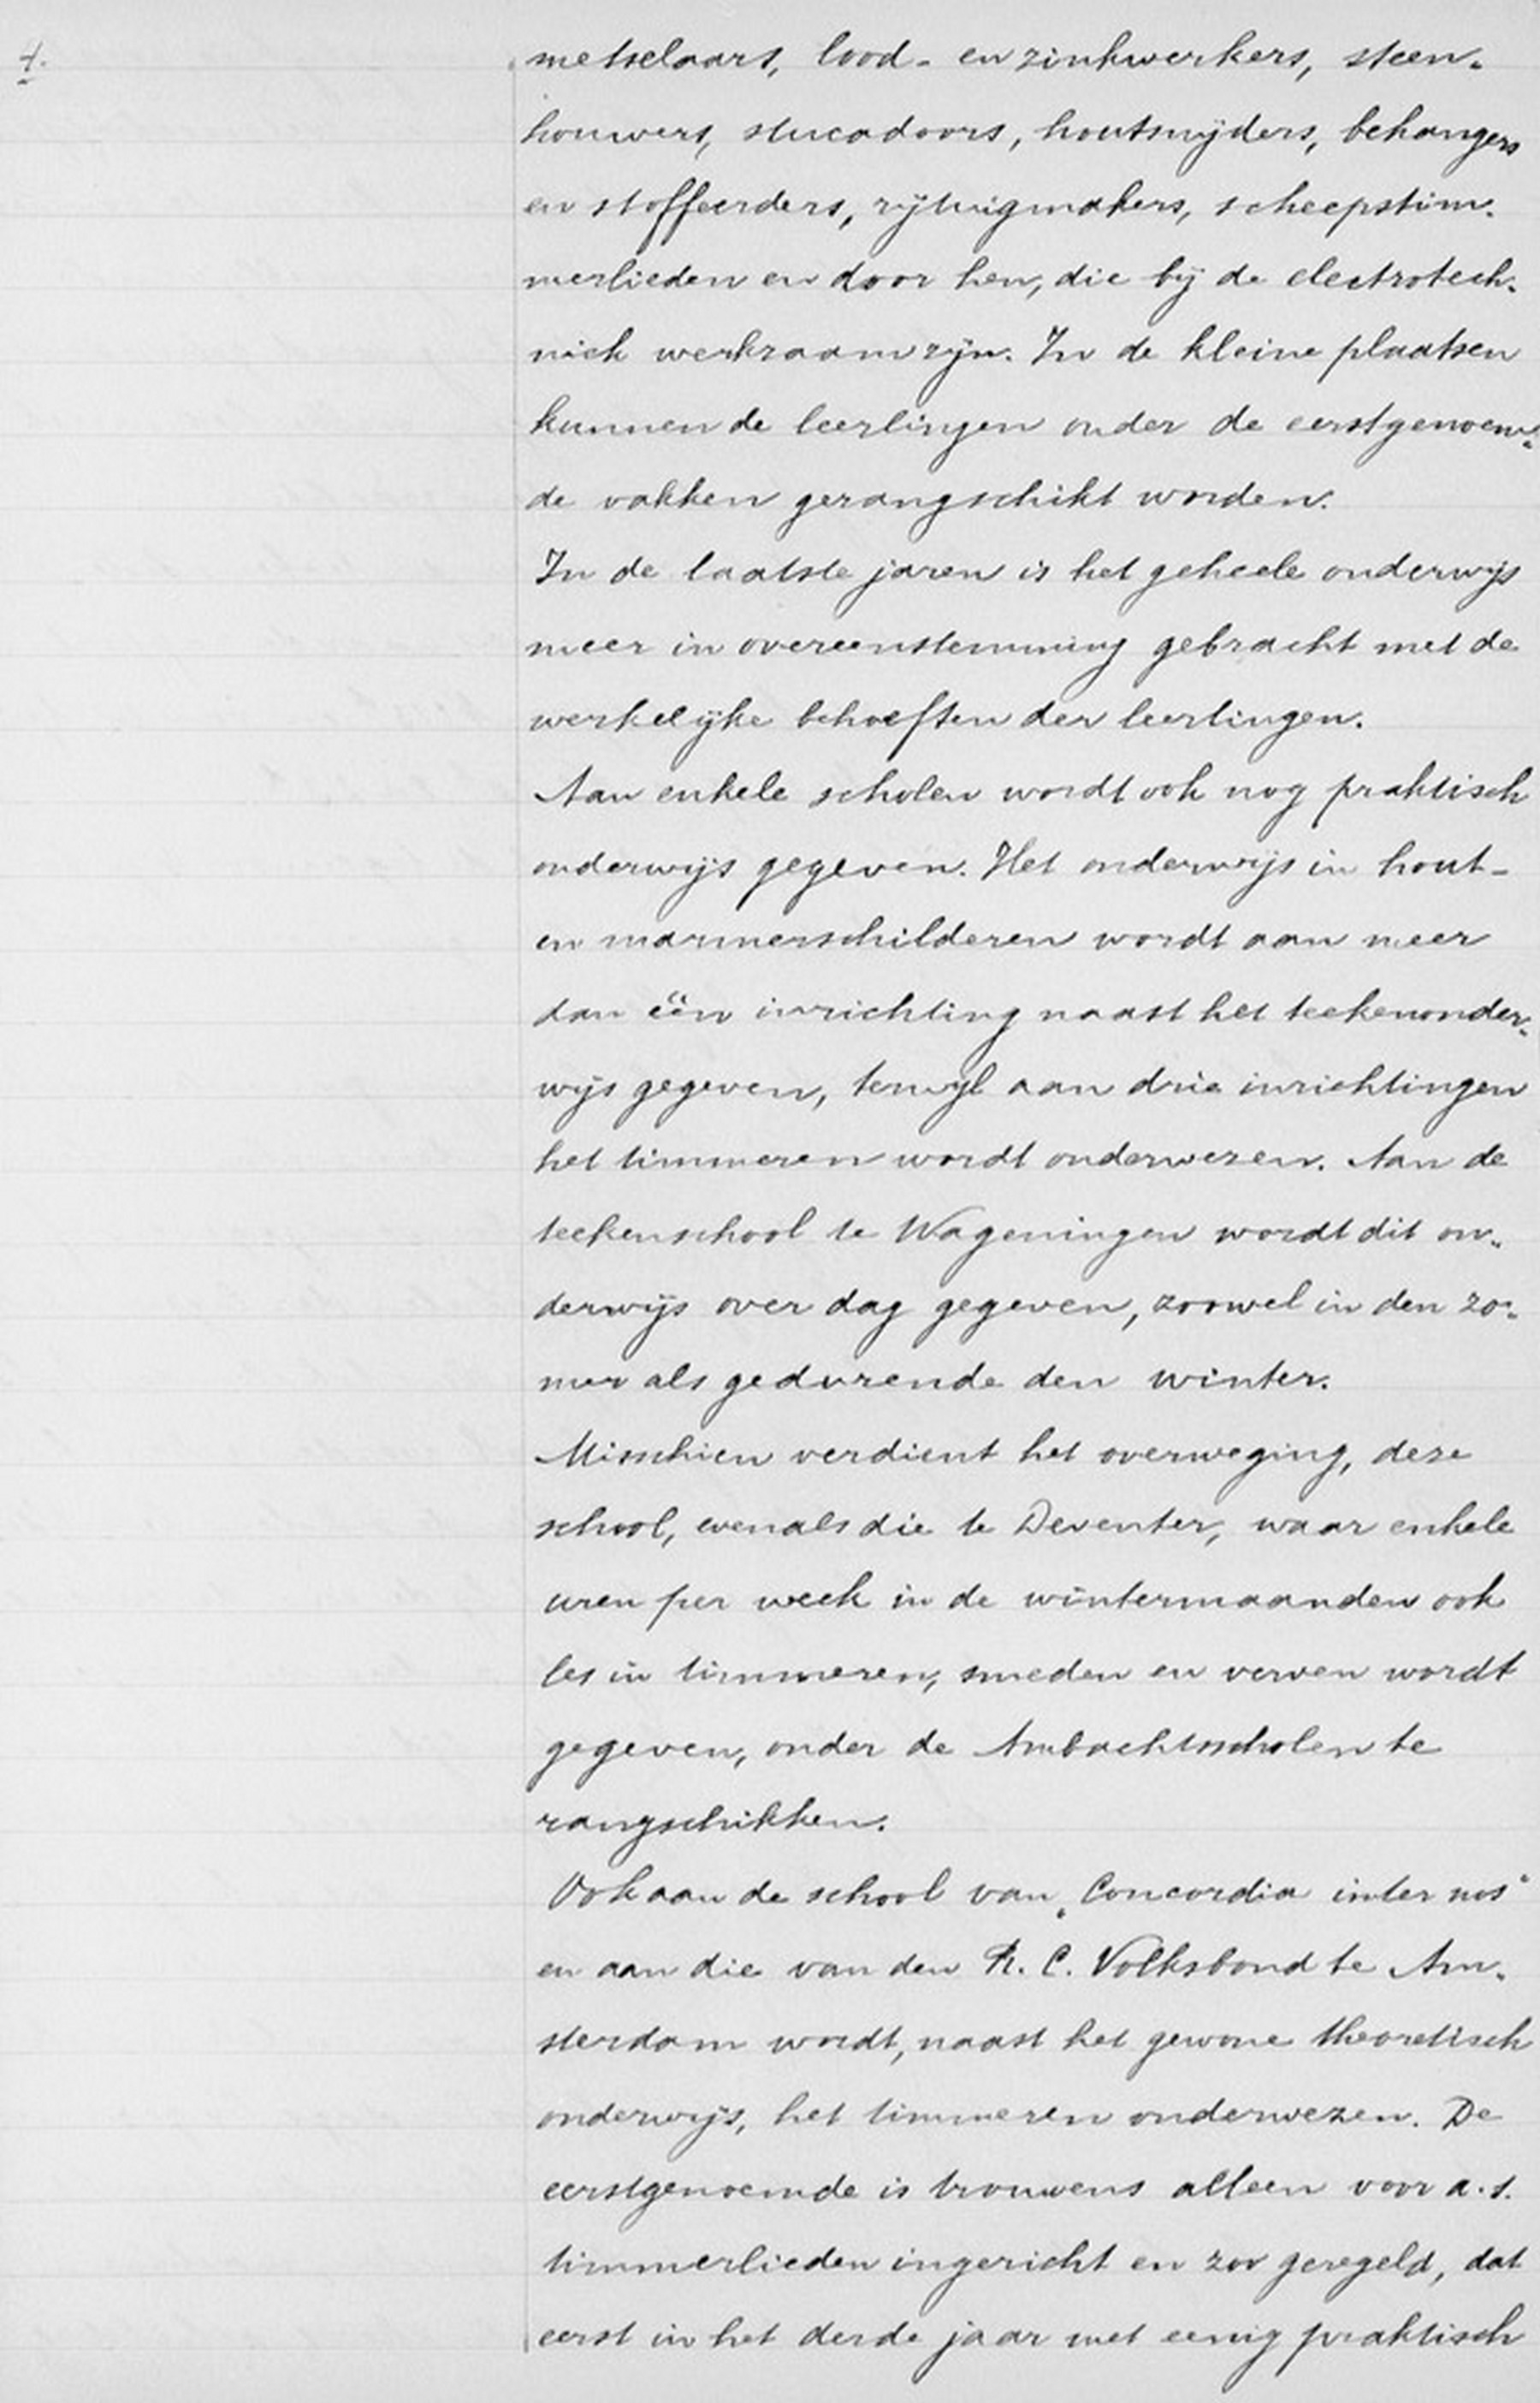 4.
metselaars, lood- en zinkwerkers, steen-
houwers, stucadoors, houtsnijders, behangers
en stoffeerders, rijtuigmakers, scheepstim-
merlieden en door hen, die bij de electrotech-
niek werkzaam zijn. In de kleine plaatsen
kunnen de leerlingen onder de eerstgenoem-
de vakken gerangschikt worden.
In de laatste jaren is het geheele onderwijs
meer in overeenstemming gebracht met de
werkelijke behoeften der leerlingen.
Aan enkele scholen wordt ook nog praktisch
onderwijs gegeven. Het onderwijs in hout-
en marmerschilderen wordt aan meer
dan één inrichting naast het teekenonder-
wijs gegeven, terwijl aan drie inrichtingen
het timmeren wordt onderwezen. Aan de
teekenschool te Wageningen wordt dit on-
derwijs over dag gegeven, zoowel in den zo-
mer als gedurende den winter.
Misschien verdient het overweging, deze
school, evenals die te Deventer, waar enkele
uren per week in de wintermaanden ook
les in timmeren, smeden en verven wordt
gegeven, onder de Ambachtsscholen te
rangschikken.
Ook aan de school van „Concordia inter nos"
en aan die van den R. C. Volksbond te Am-
sterdam wordt, naast het gewone theoretisch
onderwijs, het timmeren onderwezen. De
eerstgenoemde is trouwens alleen voor a.s.
timmerlieden ingericht en zoo geregeld, dat
eerst in het derde jaar met eenig praktisch